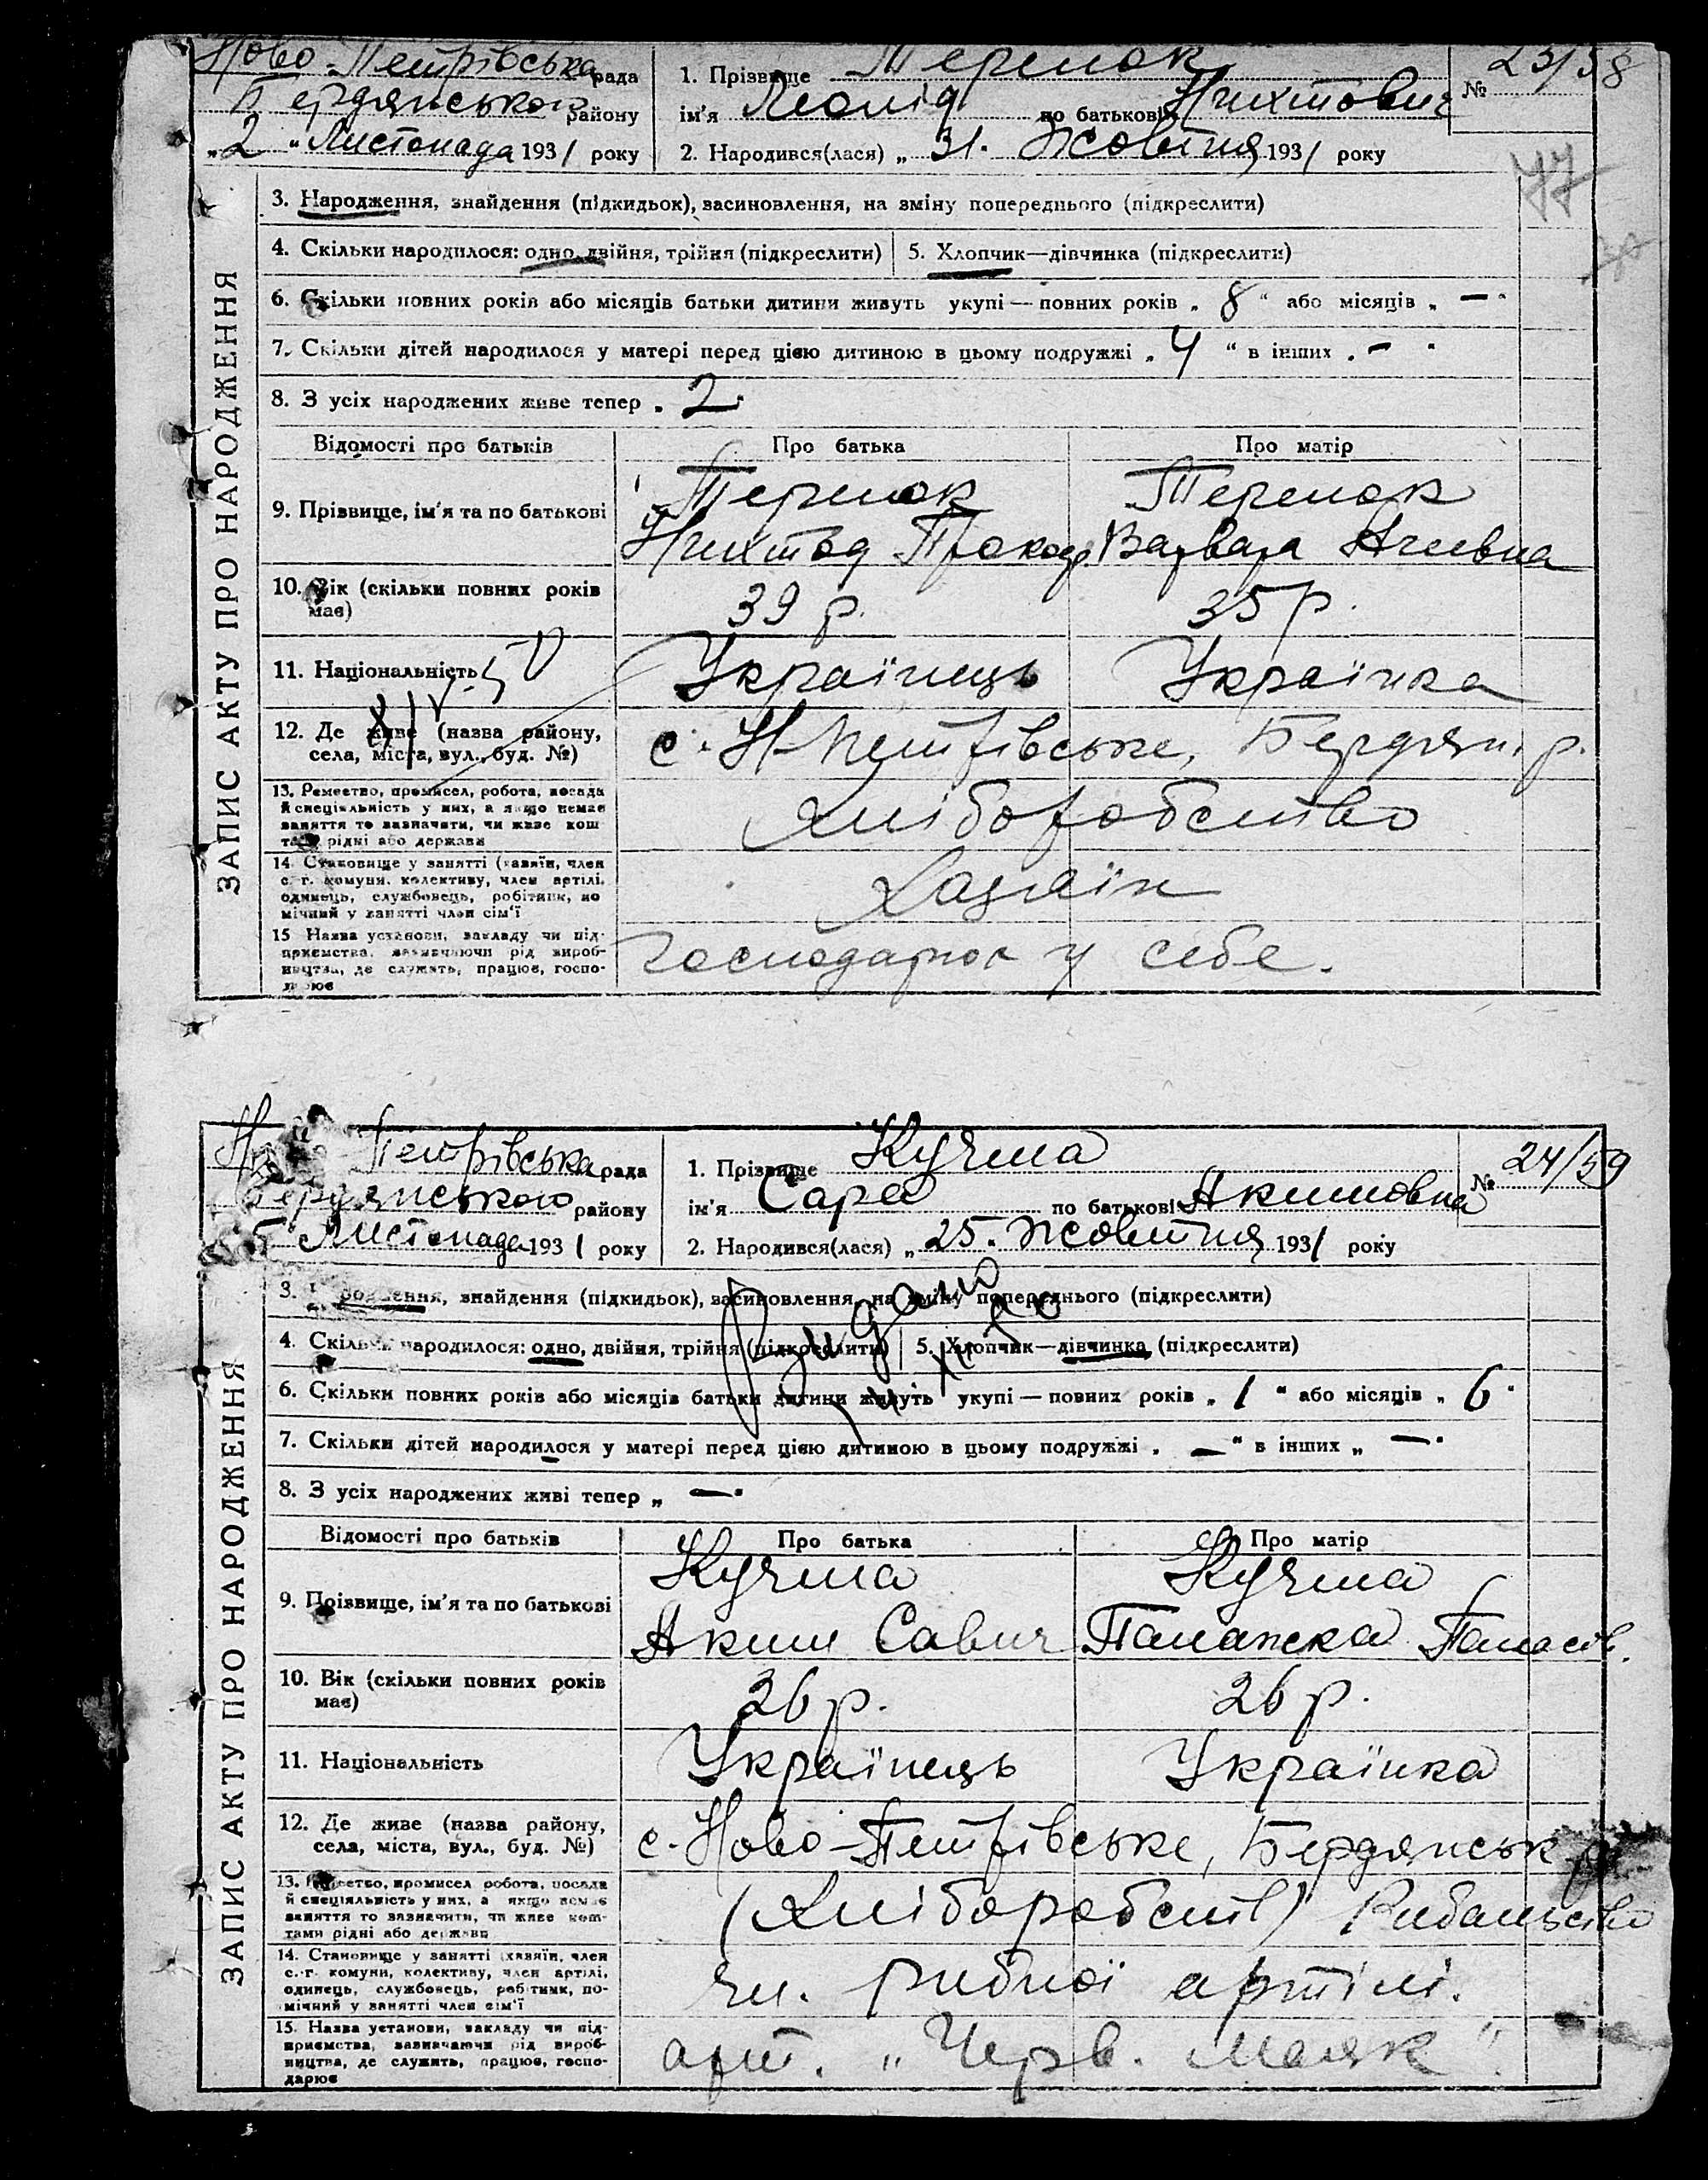 Ново-Петрівська рада
Бердянського району
„2" Листопада 1931 року
1. Прізвище Теренок
ім'я Леонід по батькові
№ 23/58
2. Народився(лася) „31. Жовтня 1931 року
77
ЗАПИС АКТУ ПРО НАРОДЖЕННЯ
3. Народження, знайдення (підкидьок), засиновлення, на зміну попереднього (підкреслити)
4. Скільки народилося: одно, двійня, трійня (підкреслити) 5. Хлопчик—дівчинка (підкреслити)
6. Скільки повних років або місяців батьки дитини живуть укупі — повних років „8" або місяців „—"
7. Скільки дітей народилося у матері перед цією дитиною в цьому подружжі „4" в інших „—"
8. З усіх народжених живе тепер „2"
Відомості про батьків Про батька Про матір
9. Прізвище, ім'я та по батькові Теренок Теренок
Варвара
10. Вік (скільки повних років має) 39 р. 35 р.
11. Національність Українець Українка
12. Де живе (назва району, села, міста, вул., буд. №) с. Н-Петрівське, Бердян. р.
13. Ремество, промисел, робота, посада й спеціяльність у них, а якщо немає заняття то зазначити, чи живе коштами рідні або держави Хліборобство
14. Становище у занятті (хазяїн, член с.-г. комуни, колективу, член артілі, одинець, службовець, робітник, помічний у занятті член сім'ї Хазяїн
15. Назва установи, закладу чи підприємства, зазначаючи рід виробництва, де служить, працює, господарює господарює у себе.
Ново-Петрівська рада
Бердянського району
5 Листопада 1931 року
1. Прізвище Кучма
ім'я Сара по батькові Акимовна
№ 24/59
2. Народився(лася) „25. Жовтня 1931 року
ЗАПИС АКТУ ПРО НАРОДЖЕННЯ
3. Народження, знайдення (підкидьок), засиновлення, на зміну попереднього (підкреслити)
4. Скільки народилося: одно, двійня, трійня (підкреслити) 5. Хлопчик—дівчинка (підкреслити)
Видано
6. Скільки повних років або місяців батьки дитини живуть укупі — повних років „1" або місяців „6"
7. Скільки дітей народилося у матері перед цією дитиною в цьому подружжі „—" в інших „—"
8. З усіх народжених живі тепер „—"
Відомості про батьків Про батька Про матір
9. Прізвище, ім'я та по батькові Кучма Кучма
Аким Савич Палажка Панасов.
10. Вік (скільки повних років має) 26 р. 26 р.
11. Національність Українець Українка
12. Де живе (назва району, села, міста, вул., буд. №) с. Ново-Петрівське, Бердянськ р.
13. Ремество, промисел робота, посада й спеціяльність у них, а якщо немає заняття то зазначити, чи живе коштами рідні або держави (Хліборобств) Рибальство
14. Становище у занятті (хазяїн, член с.-г. комуни, колективу, член артілі, одинець, службовець, робітник, помічний у занятті член сім'ї чл. рибної артілі.
15. Назва установи, закладу чи підприємства, зазначаючи рід виробництва, де служить, працює, господарює арт. „Черв. Маяк".